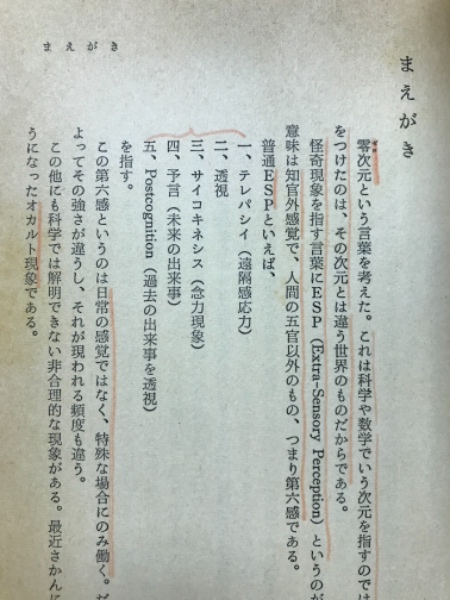 まえがき
まえがき
零次元という言葉を考えた。これは科学や数学でいう次元を指すのでは
をつけたのは、その次元とは違う世界のものだからである。
怪奇現象を指す言葉にESP（Extra-Sensory Perception）というのが
意味は知官外感覚で、人間の五官以外のもの、つまり第六感である。
普通ESPといえば、
一、テレパシイ（遠隔感応力）
二、透視
三、サイコキネシス（念力現象）
四、予言（未来の出来事）
五、Postcognition（過去の出来事を透視）
を指す。
この第六感というのは日常の感覚ではなく、特殊な場合にのみ働く。だ
よってその強さが違うし、それが現われる頻度も違う。
この他にも科学では解明できない非合理的な現象がある。最近さかんに
うになったオカルト現象である。